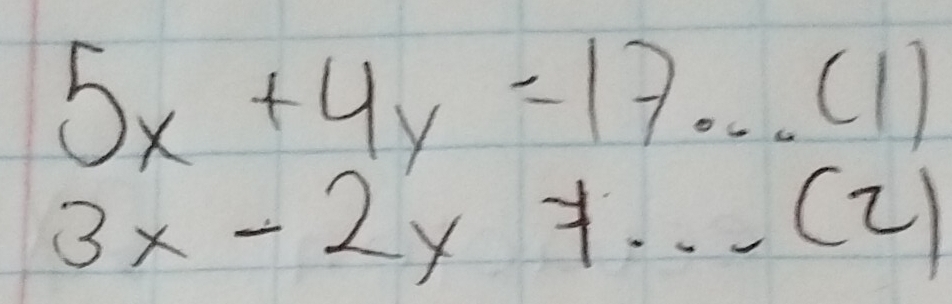 5x + 4y = 17... (1)
3x - 2y = 1... (2)